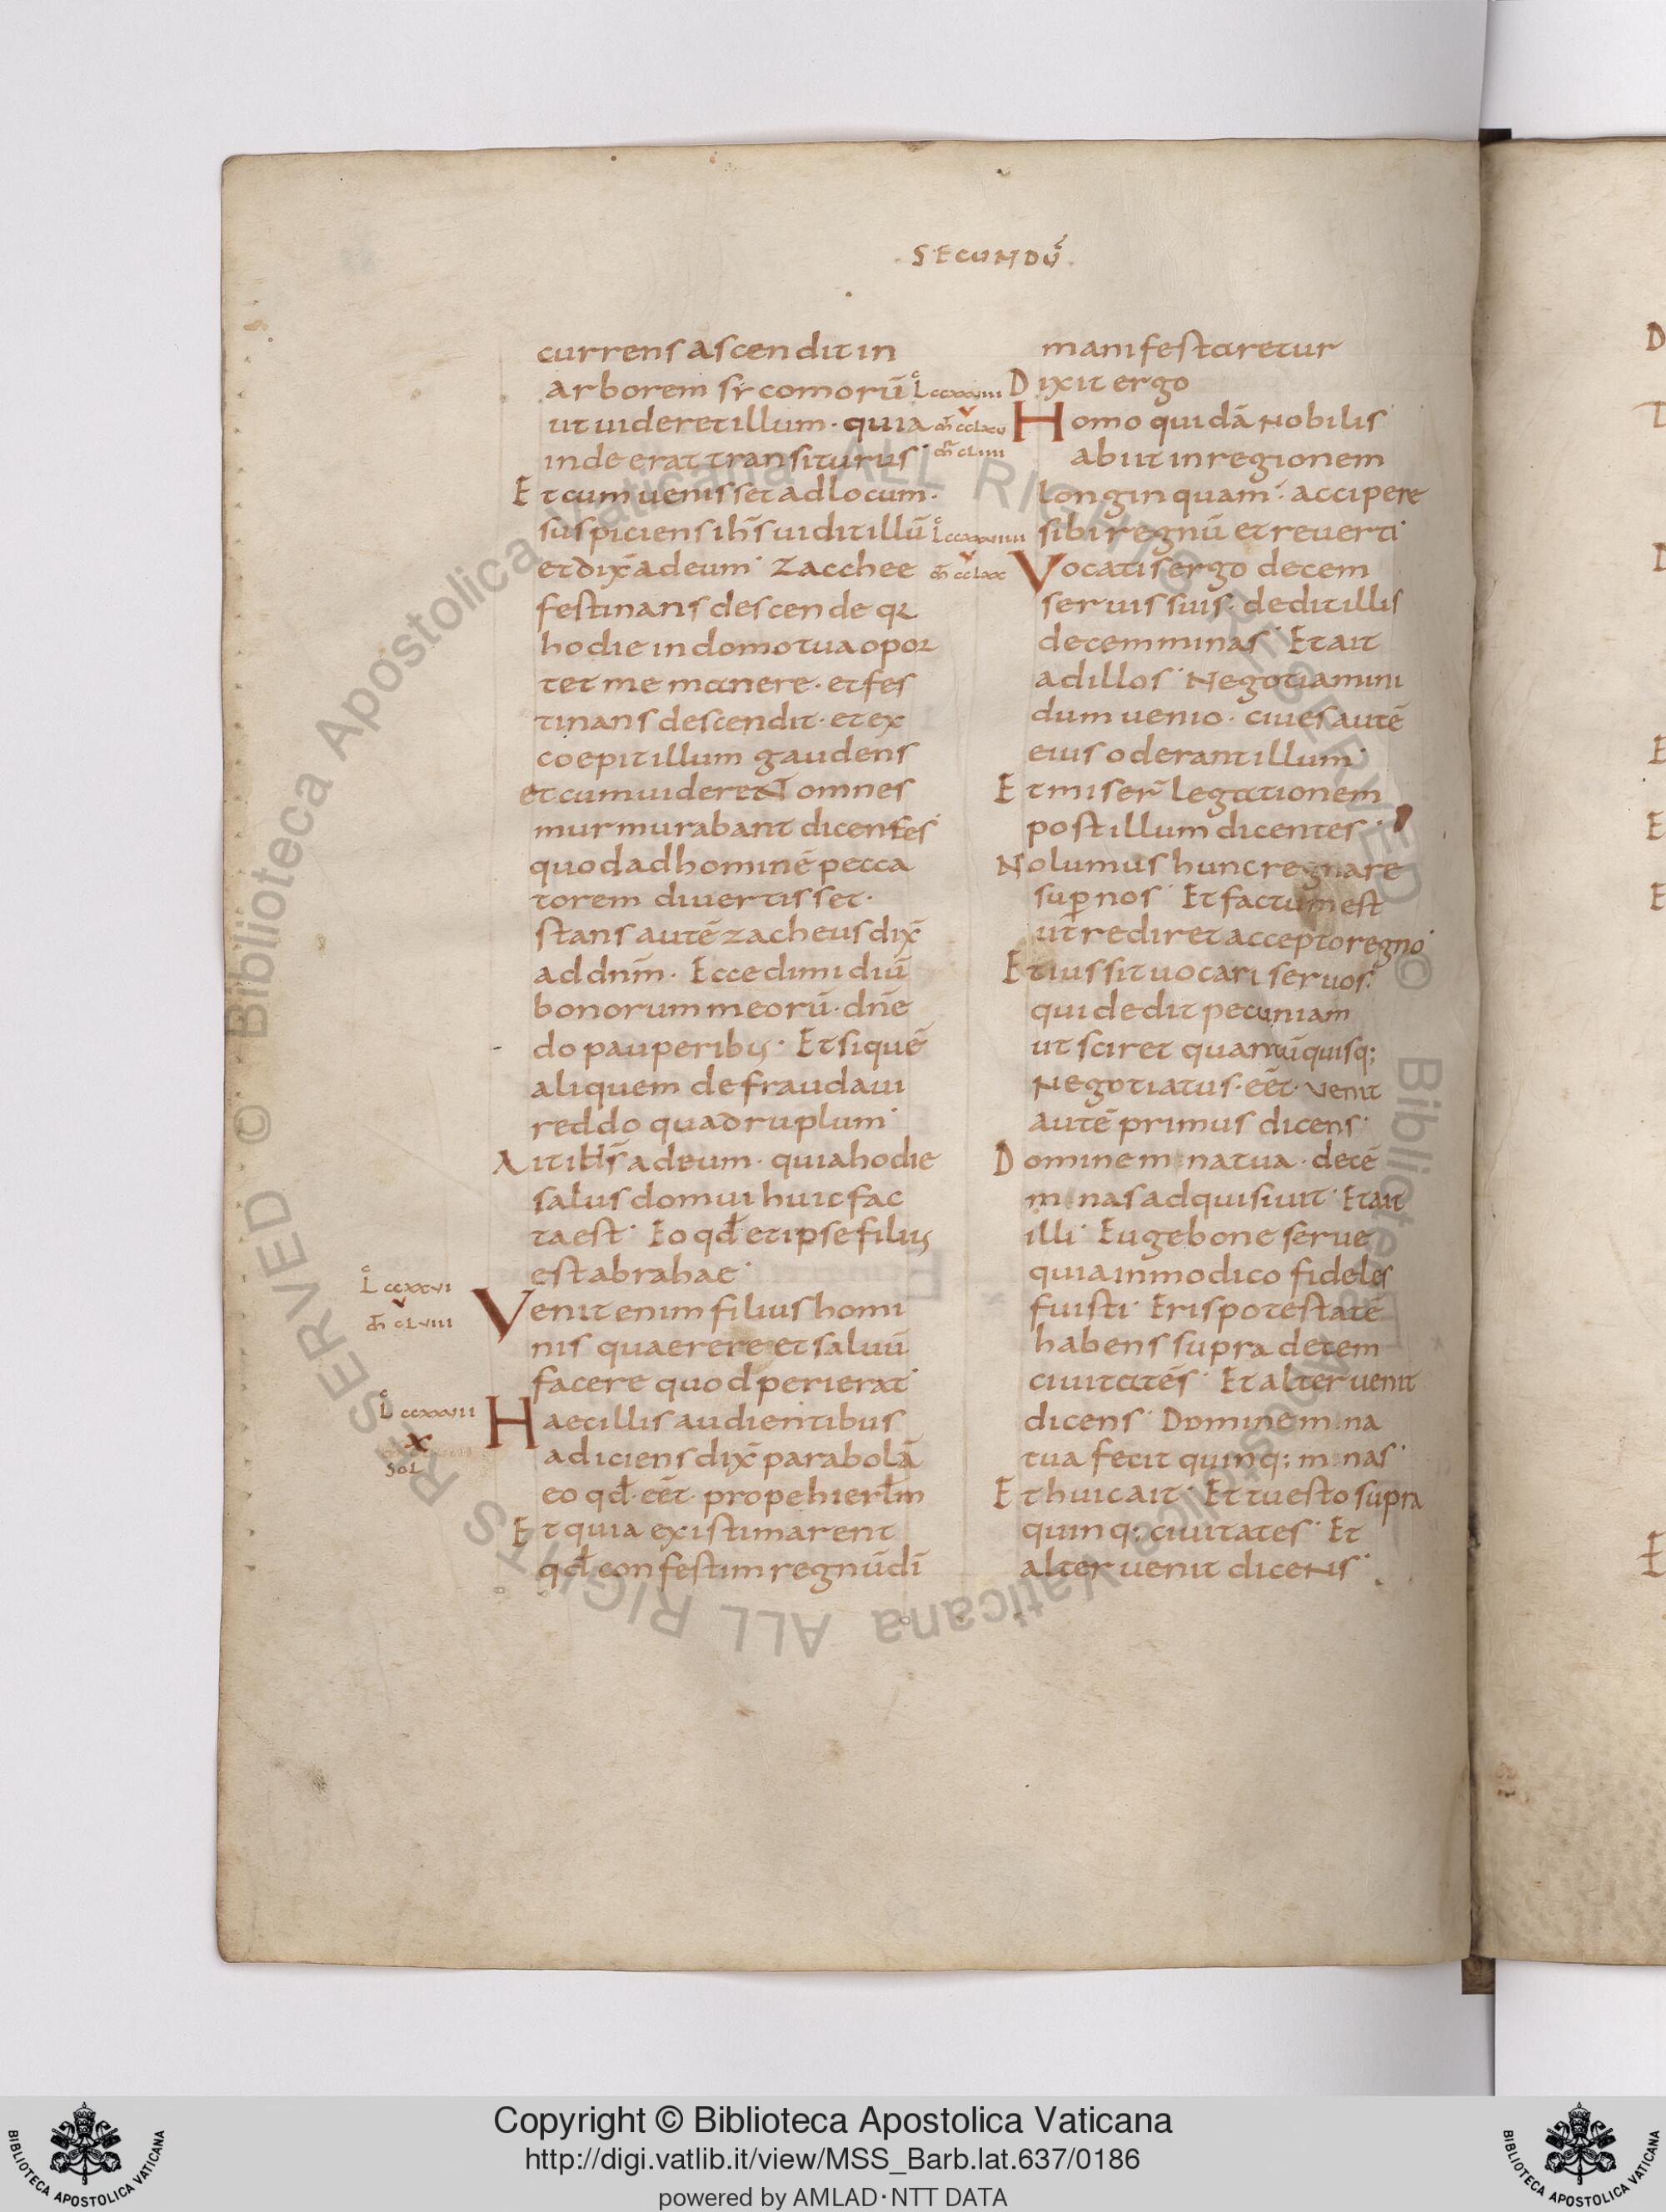 SECUNDŪ
currens ascendit in
arborem sycomorū
ut uideret illum· quia
inde erat transiturus·
Et cum uenisset ad locum·
suspiciens ih̄s uidit illū
et dix̄ ad eum· Zacchee
festinans descende qꝛ
hodie in domo tua opor
tet me manere· et fes
tinans descendit· et ex
coepit illum gaudens
et cum uiderent omnes
murmurabant dicentes·
quod ad hominē pecca
torem diuertisset·
stans autē zacheus dix̄
ad dnm̄· Ecce dimidiū
bonorum meorū· dn̄e
do pauperibus· Et si quē
aliquem defraudaui
reddo quadruplum·
Ait ih̄s ad eum· quia hodie
salus domui huic fac
ta est· Eo qđ et ipse filius
est abrahae·
L̊ ccxxvi
m̄ clviii
Venit enim filius homi
nis quaerere et saluū
facere quod perierat·
L̊ ccxxvii
x
sol
Haec illis audientibus
adiciens dix̄ parabolā
eo qđ· eēt· prope hierl̄m
Et quia existimarent
qđ confestim regnū dī
manifestaretur
Dixit ergo
Homo quidā nobilis
abiit in regionem
longinquam· accipere
sibi regnū et reuerti·
Vocatis ergo decem
seruis suis· dedit illis
decem minas· Et ait
ad illos· Negotiamini
dum uenio· ciues autē
eius oderant illum·
Et miser̄ legationem
post illum dicentes·
Nolumus hunc regnare
sup̄ nos· Et factum est
ut rediret accepto regno·
Et iussit uocari seruos·
qui dedit pecuniam
ut sciret quantū quisq;
Negotiatus· eēt· uenit
autē primus dicens·
Domine mina tua· decē
minas adquisiuit· Et ait
illi· Euge bone serue
quia in modico fideles
fuisti· Eris potestatē
habens supra decem
ciuitates· Et alter uenit
dicens· Domine mina
tua fecit quinq; minas·
Et huic ait· Et tu esto supra
quinq; ciuitates· Et
alter uenit dicens·
Biblioteca Apostolica Vaticana ALL RIGHTS RESERVED ©
Copyright © Biblioteca Apostolica Vaticana
http://digi.vatlib.it/view/MSS_Barb.lat.637/0186
powered by AMLAD·NTT DATA
BIBLIOTECA APOSTOLICA VATICANA
BIBLIOTECA APOSTOLICA VATICANA